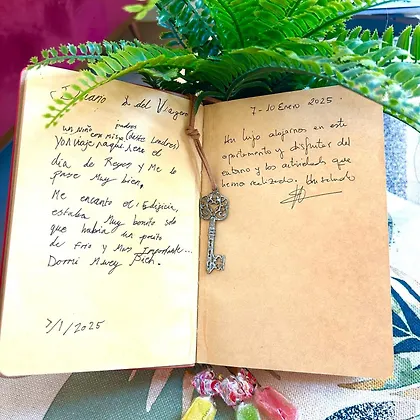 Diario del Viajero
padres
un niño con mis (desde Londres)
Yo viaje aqui, en el
día de Reyes y Me lo
pase Muy bien,
Me encanto el Edificio,
estaba Muy bonito solo
que habia un poquito
de frio y Muy Importante...
Dormi Muey Bien.
7/1/2025
7-10 Enero 2025.
Un lujo alojarnos en este
apartamento y disfrutar del
entorno y las actividades que
hemos realizado. Un saludo